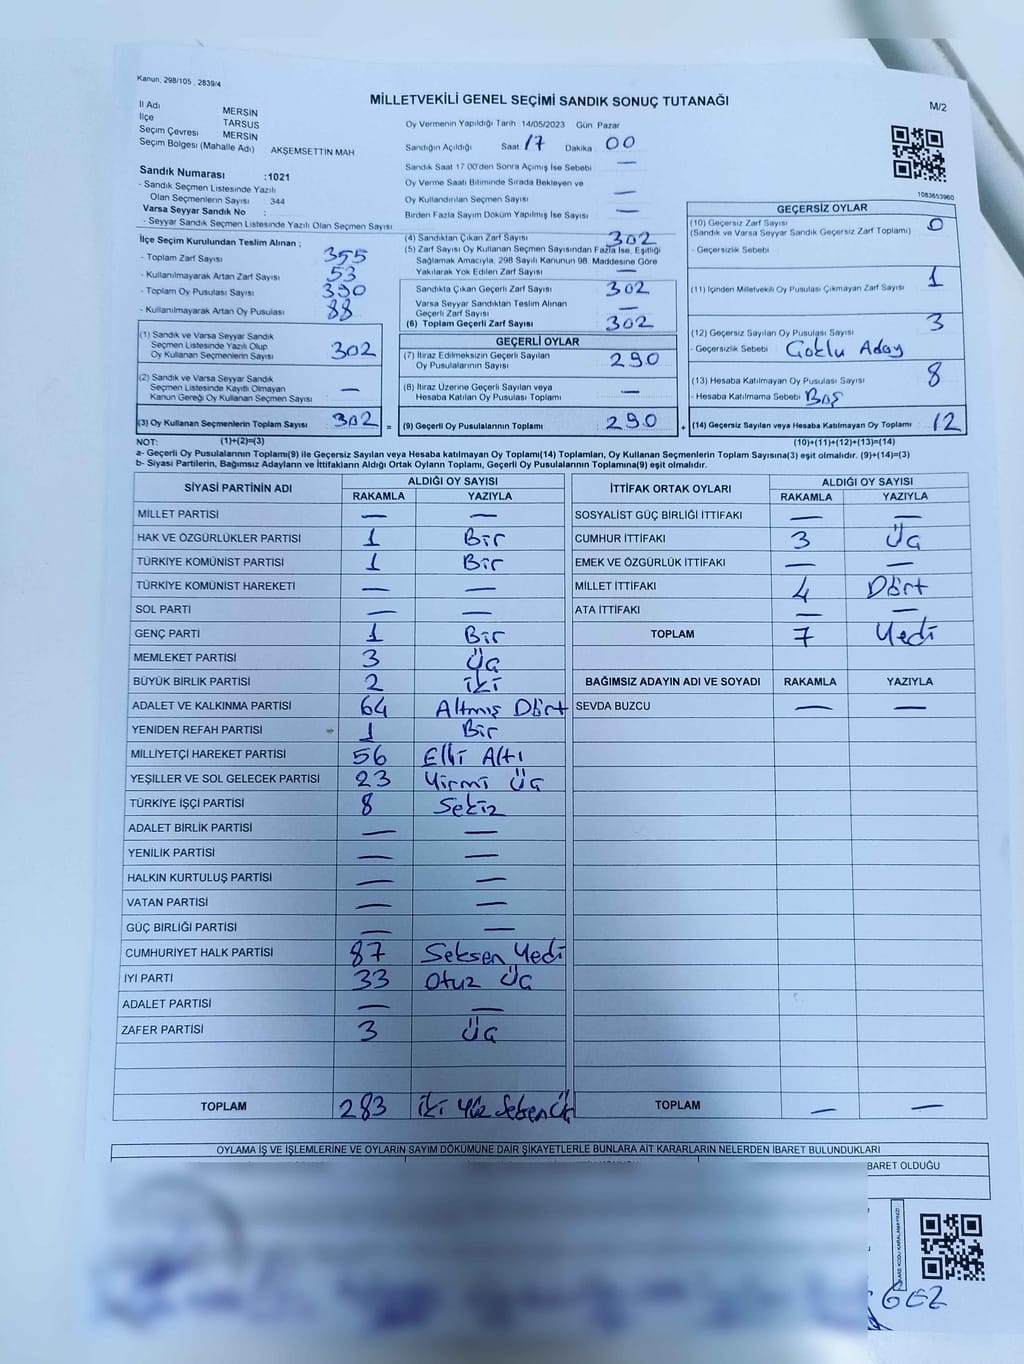 Kanun, 298/105 , 2839/4
MİLLETVEKİLİ GENEL SEÇİMİ SANDIK SONUÇ TUTANAĞI
M/2
İl Adı : MERSİN
İlçe : TARSUS
Seçim Çevresi : MERSİN
Seçim Bölgesi (Mahalle Adı) : AKŞEMSETTİN MAH
Sandık Numarası :1021
- Sandık Seçmen Listesinde Yazılı
Olan Seçmenlerin Sayısı : 344
Varsa Seyyar Sandık No :
- Seyyar Sandık Seçmen Listesinde Yazılı Olan Seçmen Sayısı
Oy Vermenin Yapıldığı Tarih 14/05/2023 Gün Pazar
Sandığın Açıldığı Saat 17 Dakika 00
Sandık Saat 17:00'den Sonra Açımış İse Sebebi —
Oy Verme Saati Bitiminde Sırada Bekleyen ve
Oy Kullandırılan Seçmen Sayısı —
Birden Fazla Sayım Döküm Yapılmış İse Sayısı —
1083653960
İlçe Seçim Kurulundan Teslim Alınan ;
- Toplam Zarf Sayısı 355
- Kullanılmayarak Artan Zarf Sayısı 53
- Toplam Oy Pusulası Sayısı 390
- Kullanılmayarak Artan Oy Pusulası 88
(1) Sandık ve Varsa Seyyar Sandık
Seçmen Listesinde Yazılı Olup
Oy Kullanan Seçmenlerin Sayısı 302
(2) Sandık ve Varsa Seyyar Sandık
Seçmen Listesinde Kayıtlı Olmayan
Kanun Gereği Oy Kullanan Seçmen Sayısı —
(3) Oy Kullanan Seçmenlerin Toplam Sayısı 302 =
(4) Sandıktan Çıkan Zarf Sayısı 302
(5) Zarf Sayısı Oy Kullanan Seçmen Sayısından Fazla İse, Eşitliği
Sağlamak Amacıyla, 298 Sayılı Kanunun 98. Maddesine Göre
Yakılarak Yok Edilen Zarf Sayısı —
Sandıkta Çıkan Geçerli Zarf Sayısı 302
Varsa Seyyar Sandıktan Teslim Alınan
Geçerli Zarf Sayısı —
(6) Toplam Geçerli Zarf Sayısı 302
GEÇERLİ OYLAR
(7) İtiraz Edilmeksizin Geçerli Sayılan
Oy Pusulalarının Sayısı 290
(8) İtiraz Üzerine Geçerli Sayılan veya
Hesaba Katılan Oy Pusulası Toplamı —
(9) Geçerli Oy Pusulalarının Toplamı 290 +
GEÇERSİZ OYLAR
(10) Geçersiz Zarf Sayısı 0
(Sandık ve Varsa Seyyar Sandık Geçersiz Zarf Toplamı)
- Geçersizlik Sebebi
(11) İçinden Milletvekili Oy Pusulası Çıkmayan Zarf Sayısı 1
(12) Geçersiz Sayılan Oy Pusulası Sayısı 3
- Geçersizlik Sebebi Çoklu Aday
(13) Hesaba Katılmayan Oy Pusulası Sayısı 8
- Hesaba Katılmama Sebebi Boş
(14) Geçersiz Sayılan veya Hesaba Katılmayan Oy Toplamı 12
NOT: (1)+(2)=(3) (10)+(11)+(12)+(13)=(14)
a- Geçerli Oy Pusulalarının Toplamı(9) ile Geçersiz Sayılan veya Hesaba katılmayan Oy Toplamı(14) Toplamları, Oy Kullanan Seçmenlerin Toplam Sayısına(3) eşit olmalıdır. (9)+(14)=(3)
b- Siyasi Partilerin, Bağımsız Adayların ve İttifakların Aldığı Ortak Oyların Toplamı, Geçerli Oy Pusulalarının Toplamına(9) eşit olmalıdır.
SİYASİ PARTİNİN ADI ALDIĞI OY SAYISI
RAKAMLA YAZIYLA
MİLLET PARTİSİ — —
HAK VE ÖZGÜRLÜKLER PARTİSİ 1 Bir
TÜRKİYE KOMÜNİST PARTİSİ 1 Bir
TÜRKİYE KOMÜNİST HAREKETİ — —
SOL PARTİ — —
GENÇ PARTİ 1 Bir
MEMLEKET PARTİSİ 3 Üç
BÜYÜK BİRLİK PARTİSİ 2 iki
ADALET VE KALKINMA PARTİSİ 64 Altmış Dört
YENİDEN REFAH PARTİSİ 1 Bir
MİLLİYETÇİ HAREKET PARTİSİ 56 Elli Altı
YEŞİLLER VE SOL GELECEK PARTİSİ 23 Yirmi Üç
TÜRKİYE İŞÇİ PARTİSİ 8 Sekiz
ADALET BİRLİK PARTİSİ — —
YENİLİK PARTİSİ — —
HALKIN KURTULUŞ PARTİSİ — —
VATAN PARTİSİ — —
GÜÇ BİRLİĞİ PARTİSİ — —
CUMHURİYET HALK PARTİSİ 87 Seksen Yedi
İYİ PARTİ 33 Otuz Üç
ADALET PARTİSİ — —
ZAFER PARTİSİ 3 Üç
TOPLAM 283 iki Yüz Seksen Üç
İTTİFAK ORTAK OYLARI ALDIĞI OY SAYISI
RAKAMLA YAZIYLA
SOSYALİST GÜÇ BİRLİĞİ İTTİFAKI — —
CUMHUR İTTİFAKI 3 Üç
EMEK VE ÖZGÜRLÜK İTTİFAKI — —
MİLLET İTTİFAKI 4 Dört
ATA İTTİFAKI — —
TOPLAM 7 Yedi
BAĞIMSIZ ADAYIN ADI VE SOYADI RAKAMLA YAZIYLA
SEVDA BUZCU — —
TOPLAM — —
OYLAMA İŞ VE İŞLEMLERİNE VE OYLARIN SAYIM DÖKÜMÜNE DAİR ŞİKAYETLERLE BUNLARA AİT KARARLARIN NELERDEN İBARET BULUNDUKLARI
BARET OLDUĞU
KODU KARALAMAYINIZ!